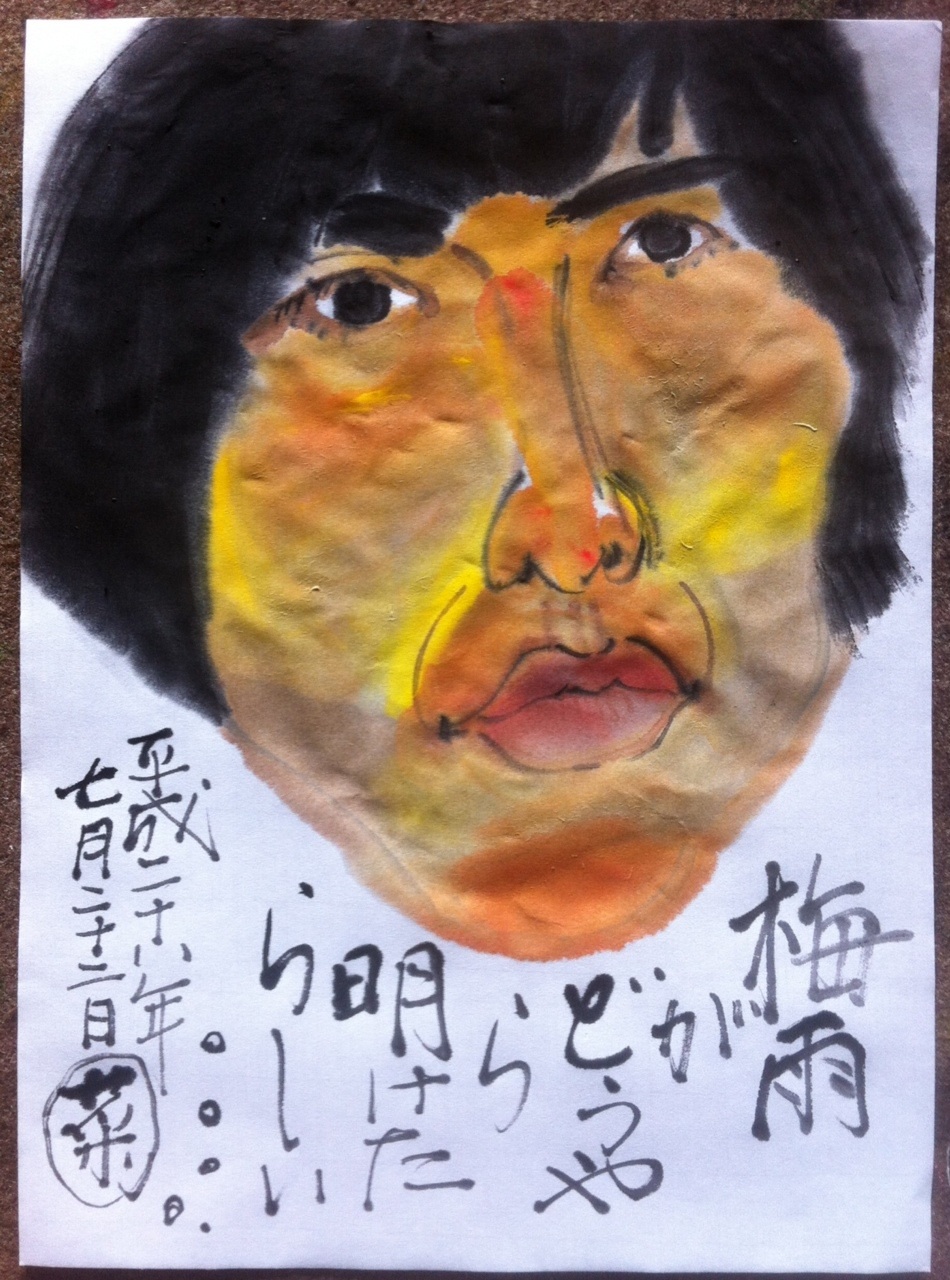 梅雨
が
どうや
ら
明けた
らしい
。。。。
平成二十六年
七月二十二日
菜